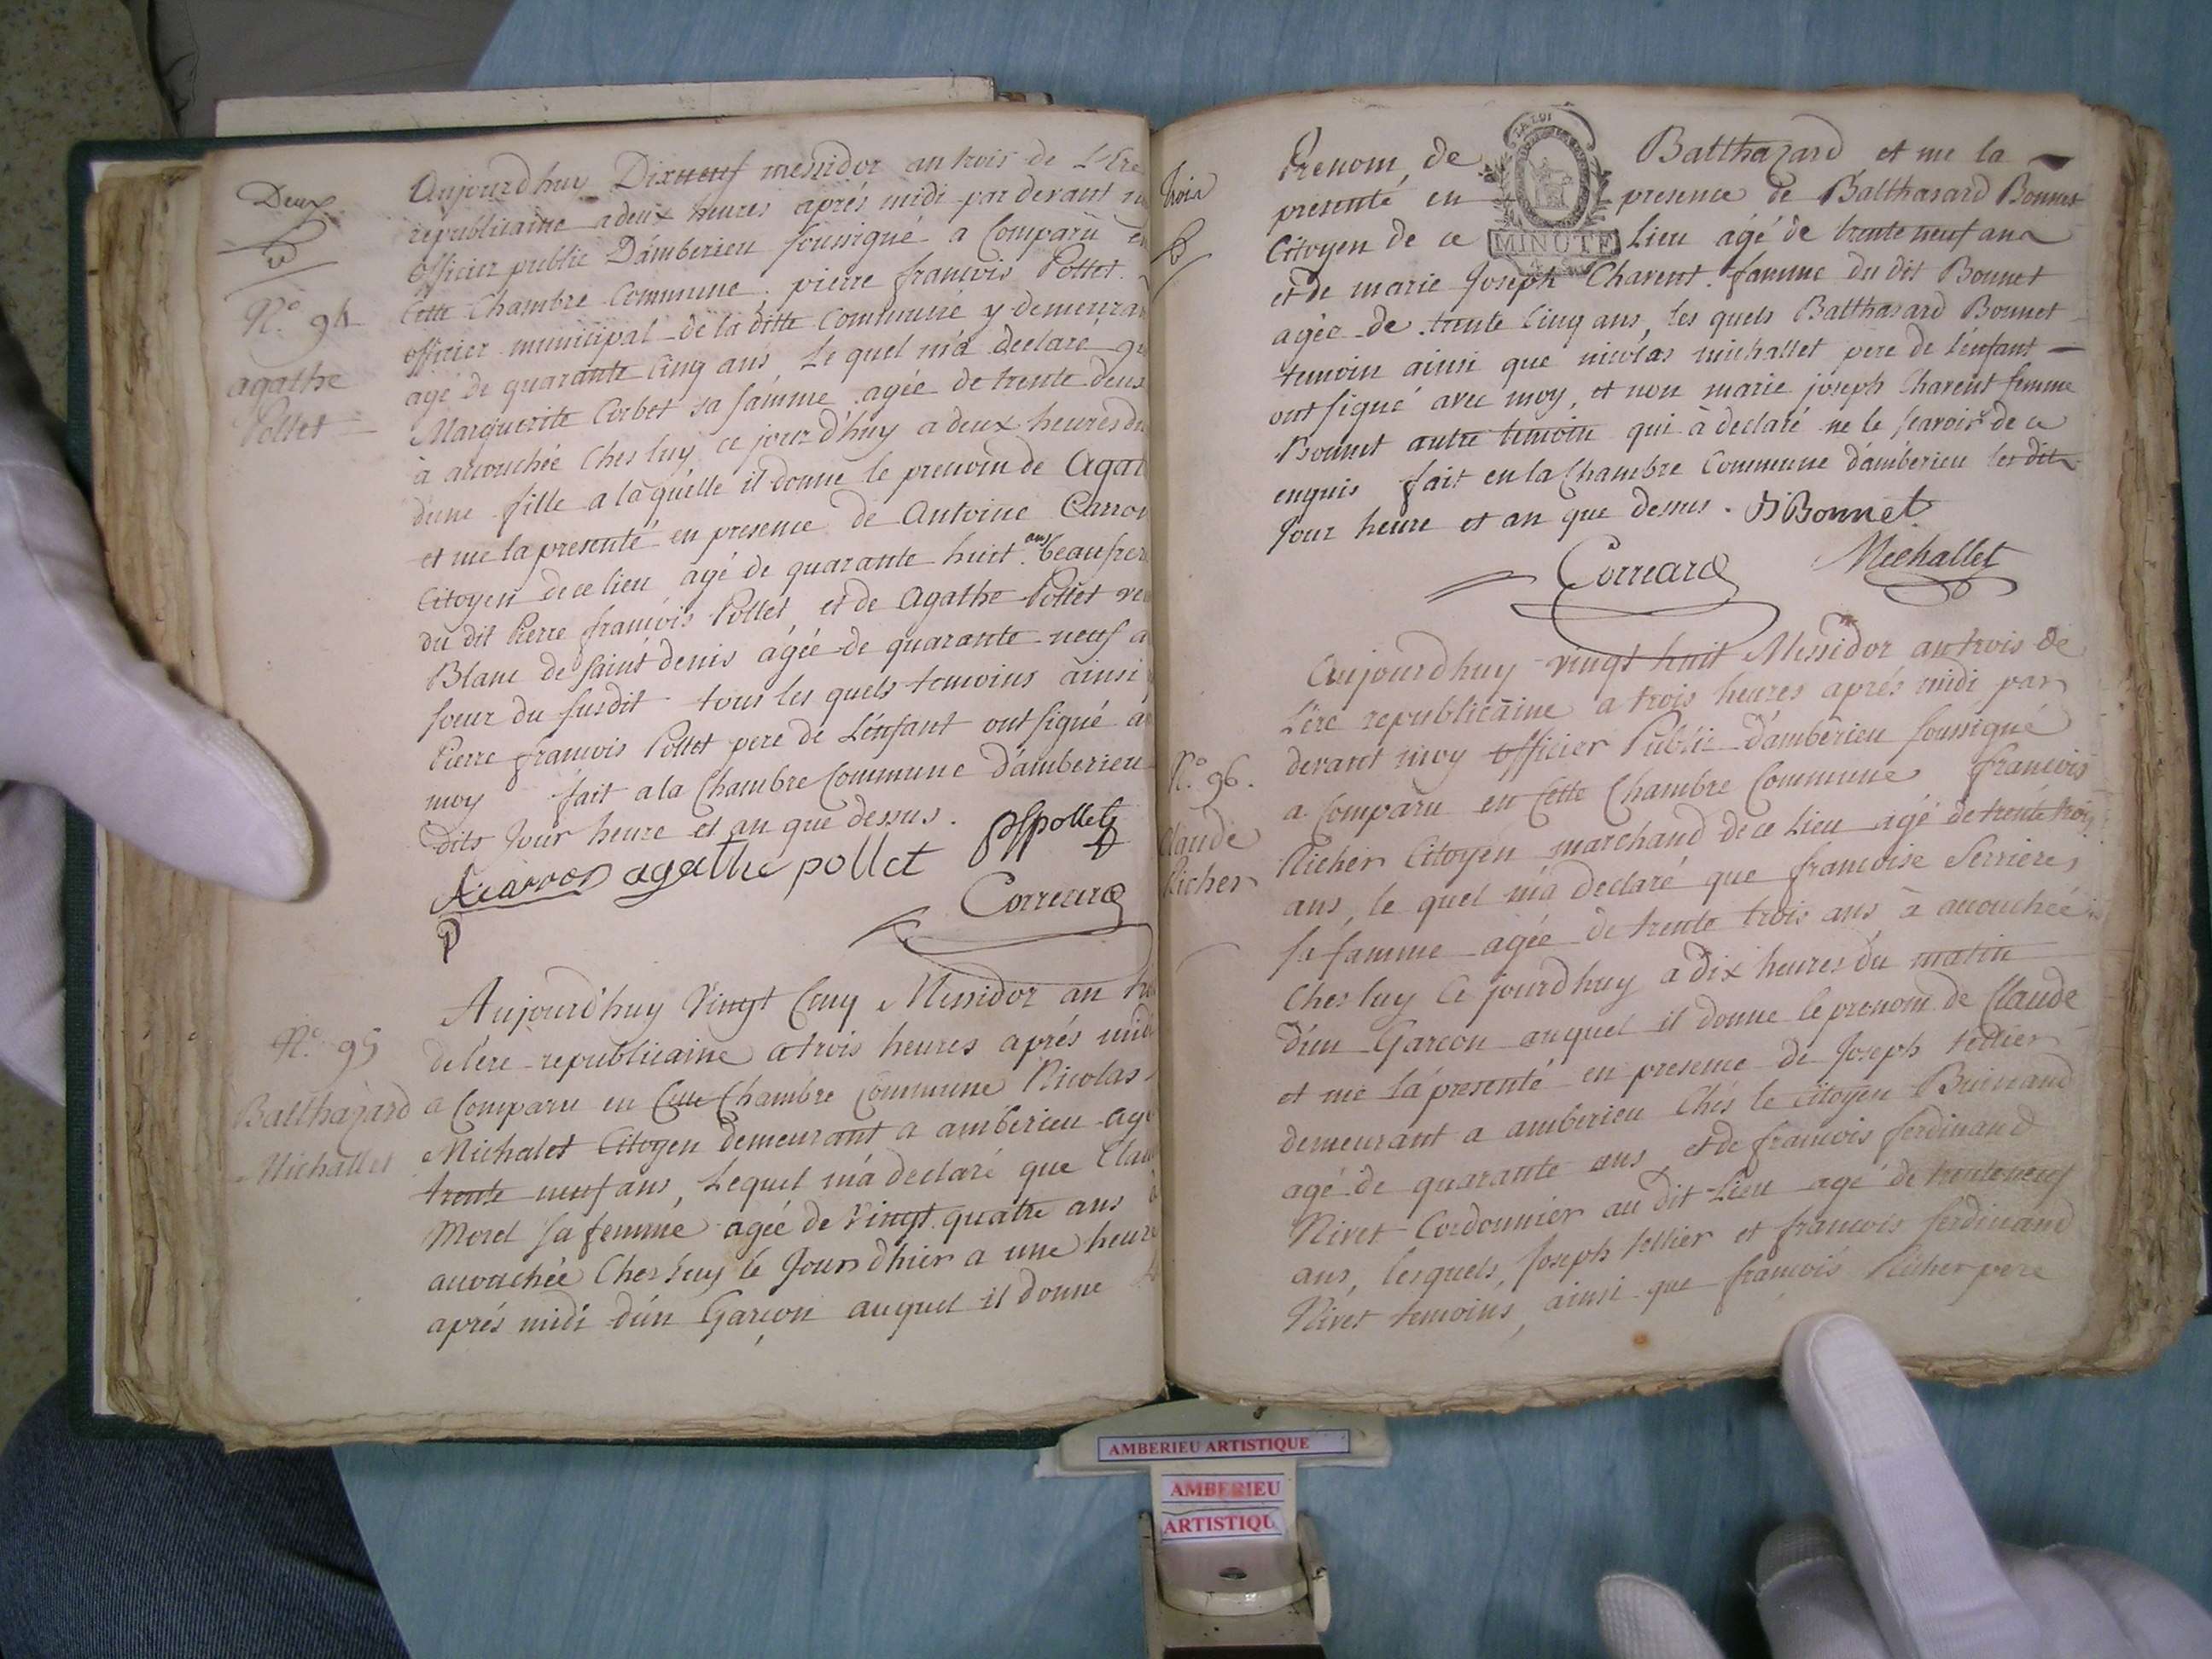 Deux
N.° 94
agathe
Pollet
Aujourdhuy Dixneuf messidor an trois de L'Ere
republicaine a deux heures aprés midi par devant
officier public D'amberieu soussigné a Comparu en
Cette Chambre Commune. pierre francois Pollet.
officier municipal de la ditte Commune y demeurant
agé de quarante Cinq ans, Le quel m'a declaré que
Marguerite Corbet sa famme agée de trente deux
à accouchée Ches luy ce jour d'huy a deux heures du
d'une fille a la quelle il donne le prenom de Agat
et me la presenté en presence de Antoine Carron
Citoyen de ce lieu agé de quarante huit ans beaufrere
du dit Pierre francois Pollet, et de Agathe Pollet
Blanc de Saint denis agée de quarante neuf
soeur du susdit tous les quels temoins ainsi
Pierre francois Pollet pere de L'enfant ont signé
moy fait a la Chambre Commune d'amberieu
dits Jour heure et an que dessus.
pfpollet
acarron agathe pollet
Correard
N.° 95
Balthazard
Michallet
Aujourd'huy Vingt Cinq Messidor an
de l'ere republicaine a trois heures aprés midi
a Comparu en Cette Chambre Commune Nicolas
Michalet Citoyen demeurant a amberieu agé
trente neuf ans, Lequel m'a declaré que
Morel sa femme agée de Vingt quatre ans
accouchée Ches luy le Jour d'hier a une heure
aprés midi d'un Garcon auquel il donne
trois
Prenom de Balthazard et me la
presenté en presence de Balthasard Bonnet
Citoyen de ce Lieu agé de trente neuf ans
LA LOI
MINUTE
et de marie Joseph Charent famme du dit Bonnet
agée de trente Cinq ans, les quels Balthasard Bonnet
temoin ainsi que nicolas michallet pere de l'enfant
ont signé avec moy, et non marie joseph Charent femme
Bonnet autre temoin qui à declaré ne le scavoir de ce
enquis fait en la Chambre Commune d'amberieu les dits
Jour heure et an que dessus. B Bonnet
Correard Michallet
N.° 96.
Claude
Richer
Aujourdhuy vingt huit Messidor an trois de
L'ére republicaine a trois heures aprés midi par
devant moy officier Public d'amberieu soussigné
a Comparu en Cette Chambre Commune francois
Richer Citoyen marchand de ce Lieu agé de trente trois
ans, le quel m'a declaré que francoise Serriere,
sa famme agée de trente trois ans à accouchée
Ches luy Ce jourdhuy a dix heures du matin
d'un Garcon auquel il donne le prenom de Claude
et me la presenté en presence de Joseph tellier
demeurant a amberieu Chés le Citoyen Buinand
agé de quarante ans et de francois ferdinand
Nivet Cordonnier au dit Lieu agé de trente neuf
ans, lesquels, Joseph tellier et francois ferdinand
Nivet temoins, ainsi que francois Richer pere
AMBERIEU ARTISTIQUE
AMBERIEU
ARTISTIQU